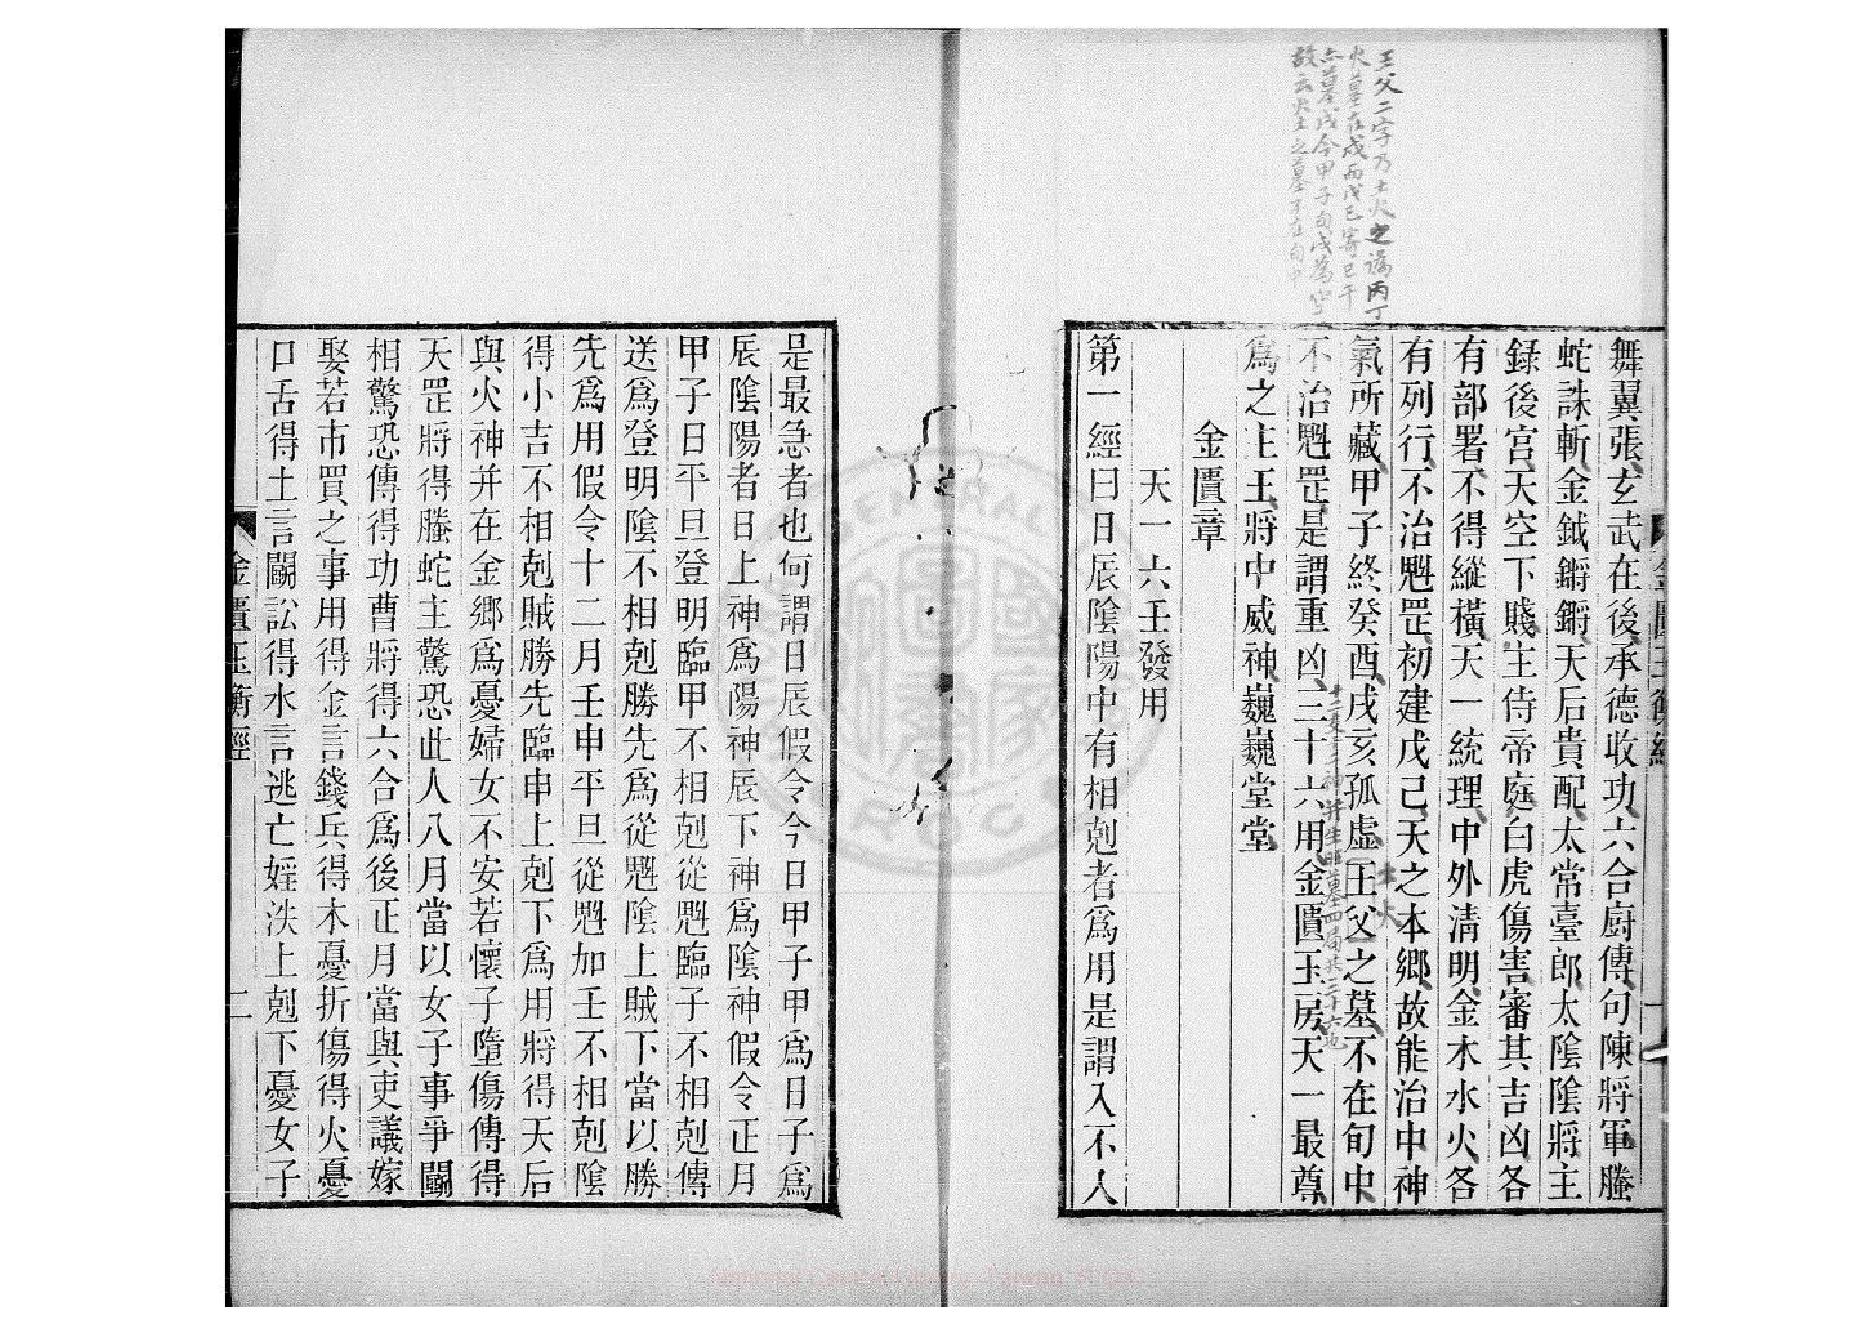 王父二字乃土火之譌丙丁
火墓在戌而戊己寄巳午
亦墓戌今甲子旬戌為空
故云火土之墓不在旬中
舞翼張玄武在後承德收功六合廚傳句陳將軍螣
蛇誅斬金鉞鏘鏘天后貴配太常臺郎太陰陰將主
錄後宮天空下賤主侍帝庭白虎傷害審其吉凶各
有部署不得縱橫天一統理中外清明金木水火各
有列行不治魁罡初建戊己天之本鄉故能治中神
氣所藏甲子終癸酉戌亥孤虛王父之墓不在旬中
土火
不治魁罡是謂重凶三十六用金匱玉房天一最尊
十二支之神并生旺墓四局共三十六也
為之主王將中威神巍巍堂堂
金匱章
天一六壬發用
第一經曰日辰陰陽中有相剋者為用是謂入不入
是最急者也何謂日辰假令今日甲子甲為日子為
辰陰陽者日上神為陽神辰下神為陰神假令正月
甲子日平旦登明臨甲不相剋從魁臨子不相剋傳
送為登明陰不相剋勝先為從魁陰上賊下當以勝
先為用假令十二月壬申平旦從魁加壬不相剋陰
得小吉不相剋賊勝先臨申上剋下為用將得天后
與火神并在金鄉為憂婦女不安若懷子墮傷傳得
天罡將得螣蛇主驚恐此人八月當以女子事爭鬭
相驚恐傳得功曹將得六合為後正月當與吏議嫁
娶若市買之事用得金言錢兵得木憂折傷得火憂
口舌得土言鬭訟得水言逃亡婬泆上剋下憂女子
金匱玉衡經
二